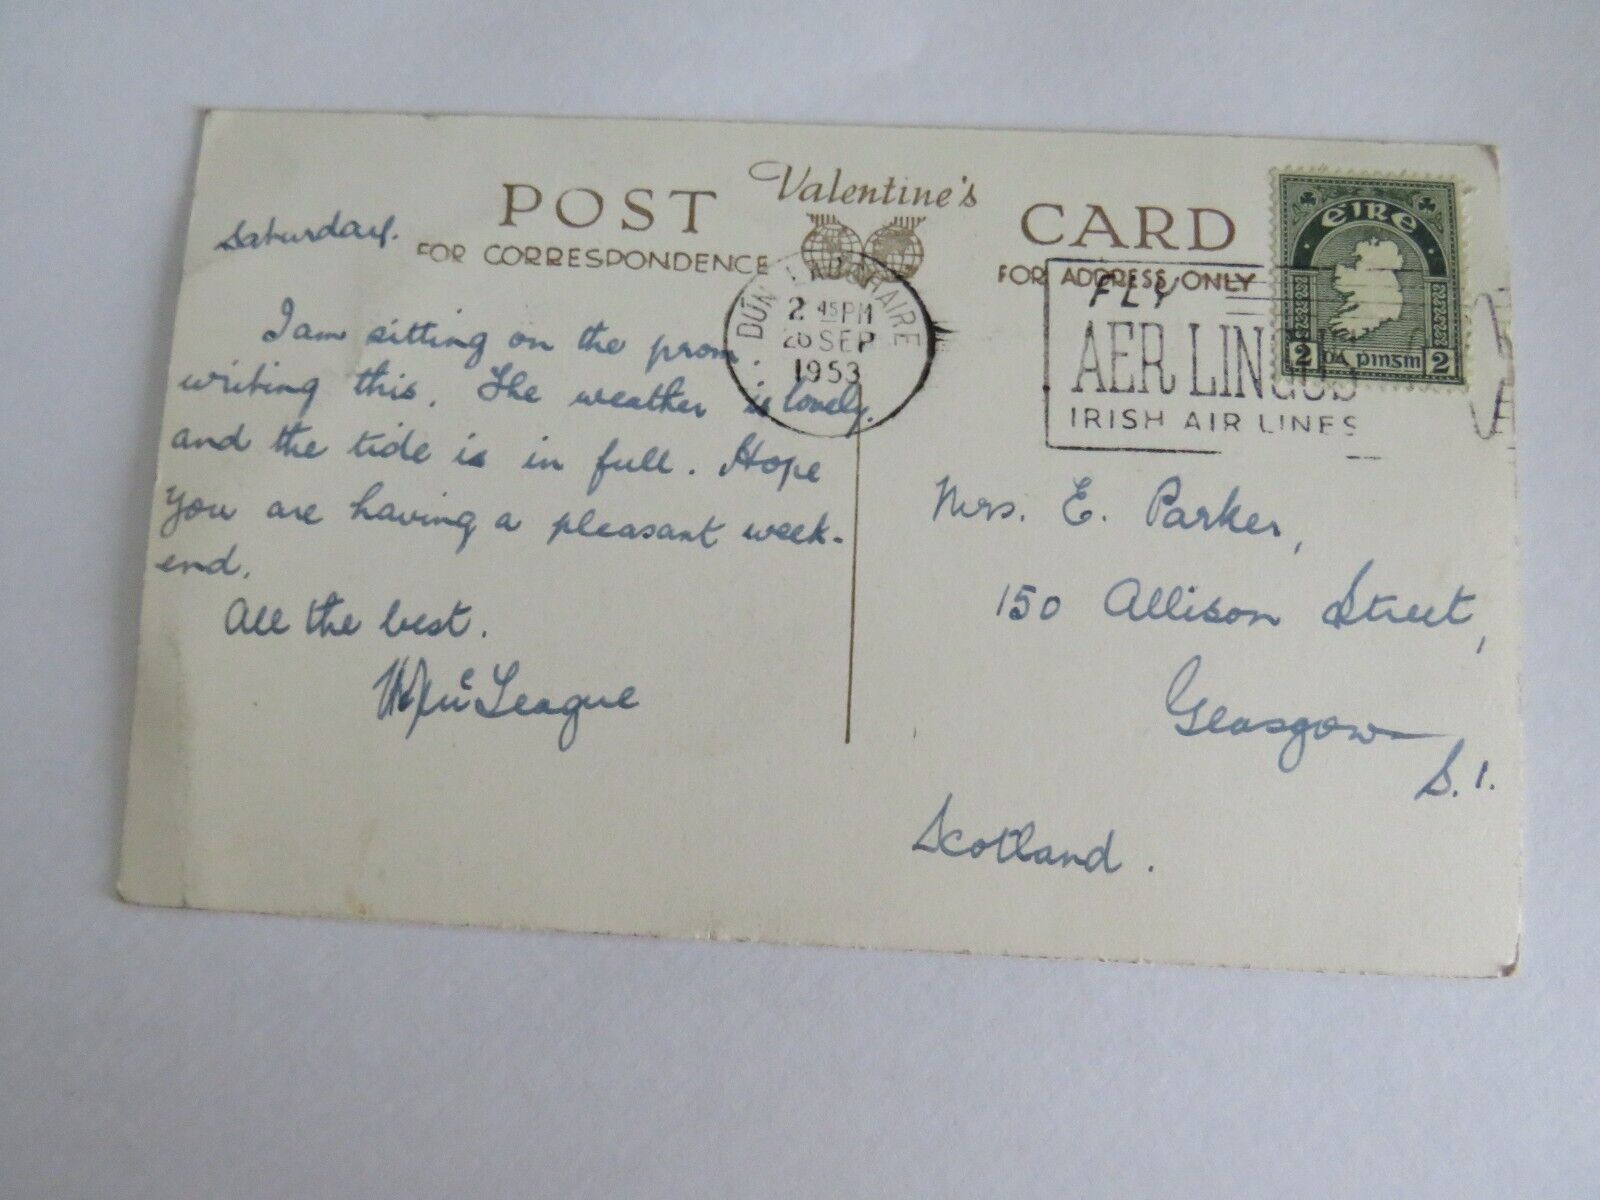 POST Valentine's CARD
FOR CORRESPONDENCE FOR ADDRESS ONLY
DÚN LAOGHAIRE
2 45PM
26 SEP
1953
FLY
AER LINGUS
IRISH AIR LINES
éire
2 DÁ PINSIN 2
Saturday.
I am sitting on the prom.
writing this. The weather is lovely.
and the tide is in full. Hope
you are having a pleasant week-
end.
All the best.
McLeague
Mrs. E. Parker,
150 Allison Street,
Glasgow
S.1.
Scotland.